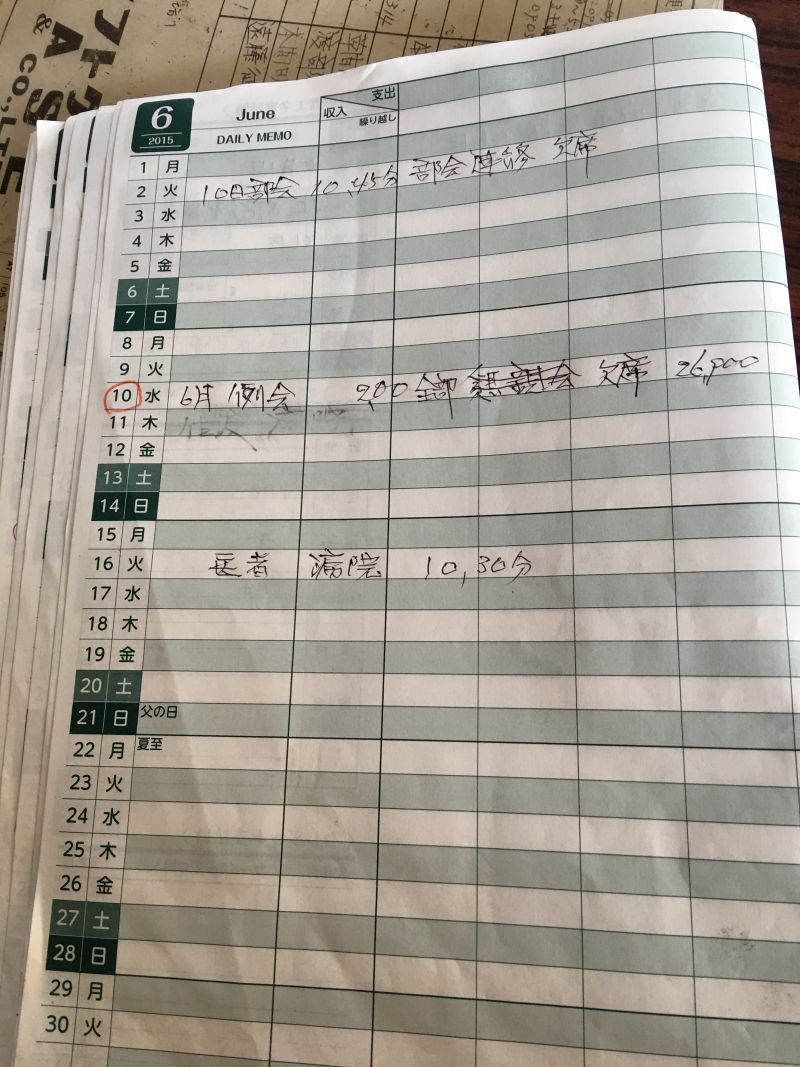 6
2015
June
DAILY MEMO
収入
支出
繰り越し
1 月
2 火 10日部会 10,45分 部会 欠席
3 水
4 木
5 金
6 土
7 日
8 月
9 火
10 水 6月例会 2,00 全部 懇親会 欠席 26,000
11 木
12 金
13 土
14 日
15 月
16 火 医者 病院 10,30分
17 水
18 木
19 金
20 土
21 日 父の日
22 月 夏至
23 火
24 水
25 木
26 金
27 土
28 日
29 月
30 火